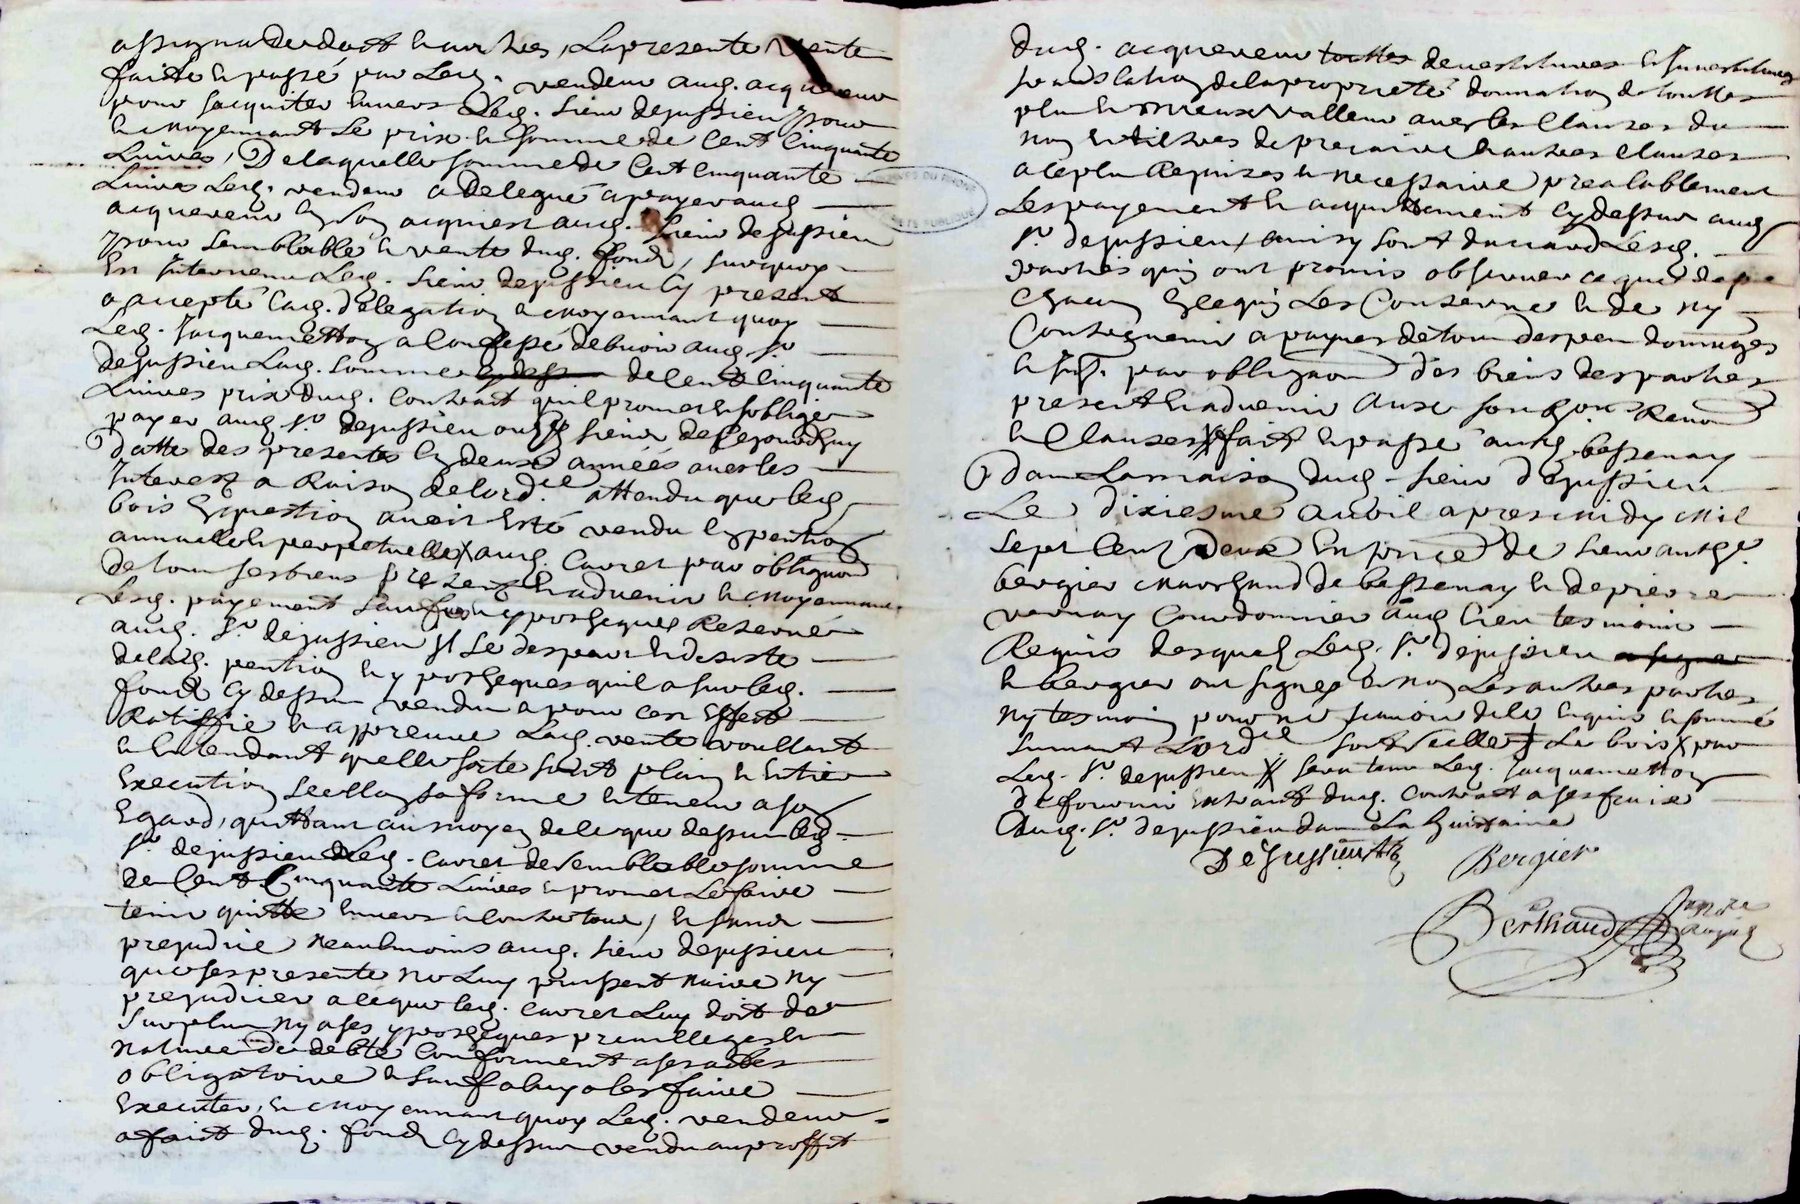 assigna dudoit et autres, La presente vente
faitte et passé par Led. vendeur aud. acquereur
pour sacquiter envers Led. sieur dejussieu pour
et moyennant Le prix et somme de Cent Cinquante
Luivres, De laquelle somme de Cent Cinquante
Luivres Led. vendeur a delegué a payer aud
acquereur acquiest aud. sieur dejussieu
pour semblable vente dud. fond, surquoy
Est Intervenu Led. sieur dejussieu Cy present
a accepté Lad. delegation et moyennant quoy
Led. Jacquemetton a Confessé debvoir aud. sr.
dejussieu Lad. somme de Cent Cinquante
Luivres prix dud. Contrait quil promet et soblige
payer aud. sr dejussieu sieur de Cejourdhuy
datte des presentes En deux années avec les
Interest a Raison de Lord.ce attendu que led
bois En question avoit Esté vendu En pention
annuelle et perpetuelle aud. Cavret par obligaon
de tous ses biens present et advenir et moyennant
Led. payement sans hyposheques Reservé
aud. sr. dejussieu Il se despart et desiste
de lad. pention et yposheques quil a sur led.
fond Cy dessus vendu a pour cest Effect
Ratiffie et appreuve Lad. vente voullant
et Entendant quelle sorte soint plain et Entier
Execution selon sa forme et teneur a son
Egard, quittant au moyen de ce que dessus led
sr. dejussieu Led. Cavret de semblable somme
de Cent Cinquante Luivres et promet Le faire
tenir quitte Envers et Contre tous, et sans
prejudice neantmoins aud. sieur dejussieu
que ses presente ne Luy puissent nuire ny
prejudicier a ce que led. Cavret Luy doit de
surplus ny a ses yposheques privilleges et
nature de debte Conforment a ses actes
obligatoire et sauf a luy a les faire
Executer, et moyennant quoy Led. vendeur
a fait dud. fond Cy dessus vendu au proffit
dud. acquereur touttes devestitures et Investitures
translation de la proprieté donnation de touttes
plus et mieux valleur avec les Clauses du
nom et tiltres de precaire et autres Clauses
a ce plus Requises et necessaire prealablement
Les payement et acquittement Cy dessus aud
sr. dejussieu, ainsy sont daccord Lesd.
parties quy ont promis observer ce que depe
Chacun En ce quy Les Conserne et de ny
Contrevenir a paynes de tous despens dommages
et Int. par obligaon des biens des parties
present et advenir Renon
et Clauses fait et passé aud bessenay
Dans La maison dud. sieur dejussieu
Le dixiesme avril apres midy mil
sept Cent deux En presence de sieur
bergier marchand de bessenay et de pierre
vernay Courdonnier aud Lieu tesmoins
Requis desquels Led. sr. dejussieu a signer
et bergier ont signes et non Les autres parties
ny tesmoin pour ne scavoir de ce Enquis et sommé
suivant Lordce Le bois par
Led. sr. dejussieu sera tenu Led. Jacquemetton
de fournir Extrait dud. Contrait a ses fraix
aud. sr. dejussieu dans La huictaine
DeJussieu
Bergier
Berthaud